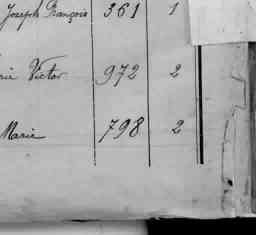 Joseph François 361 1
rie Victor 972 2
Marie 798 2